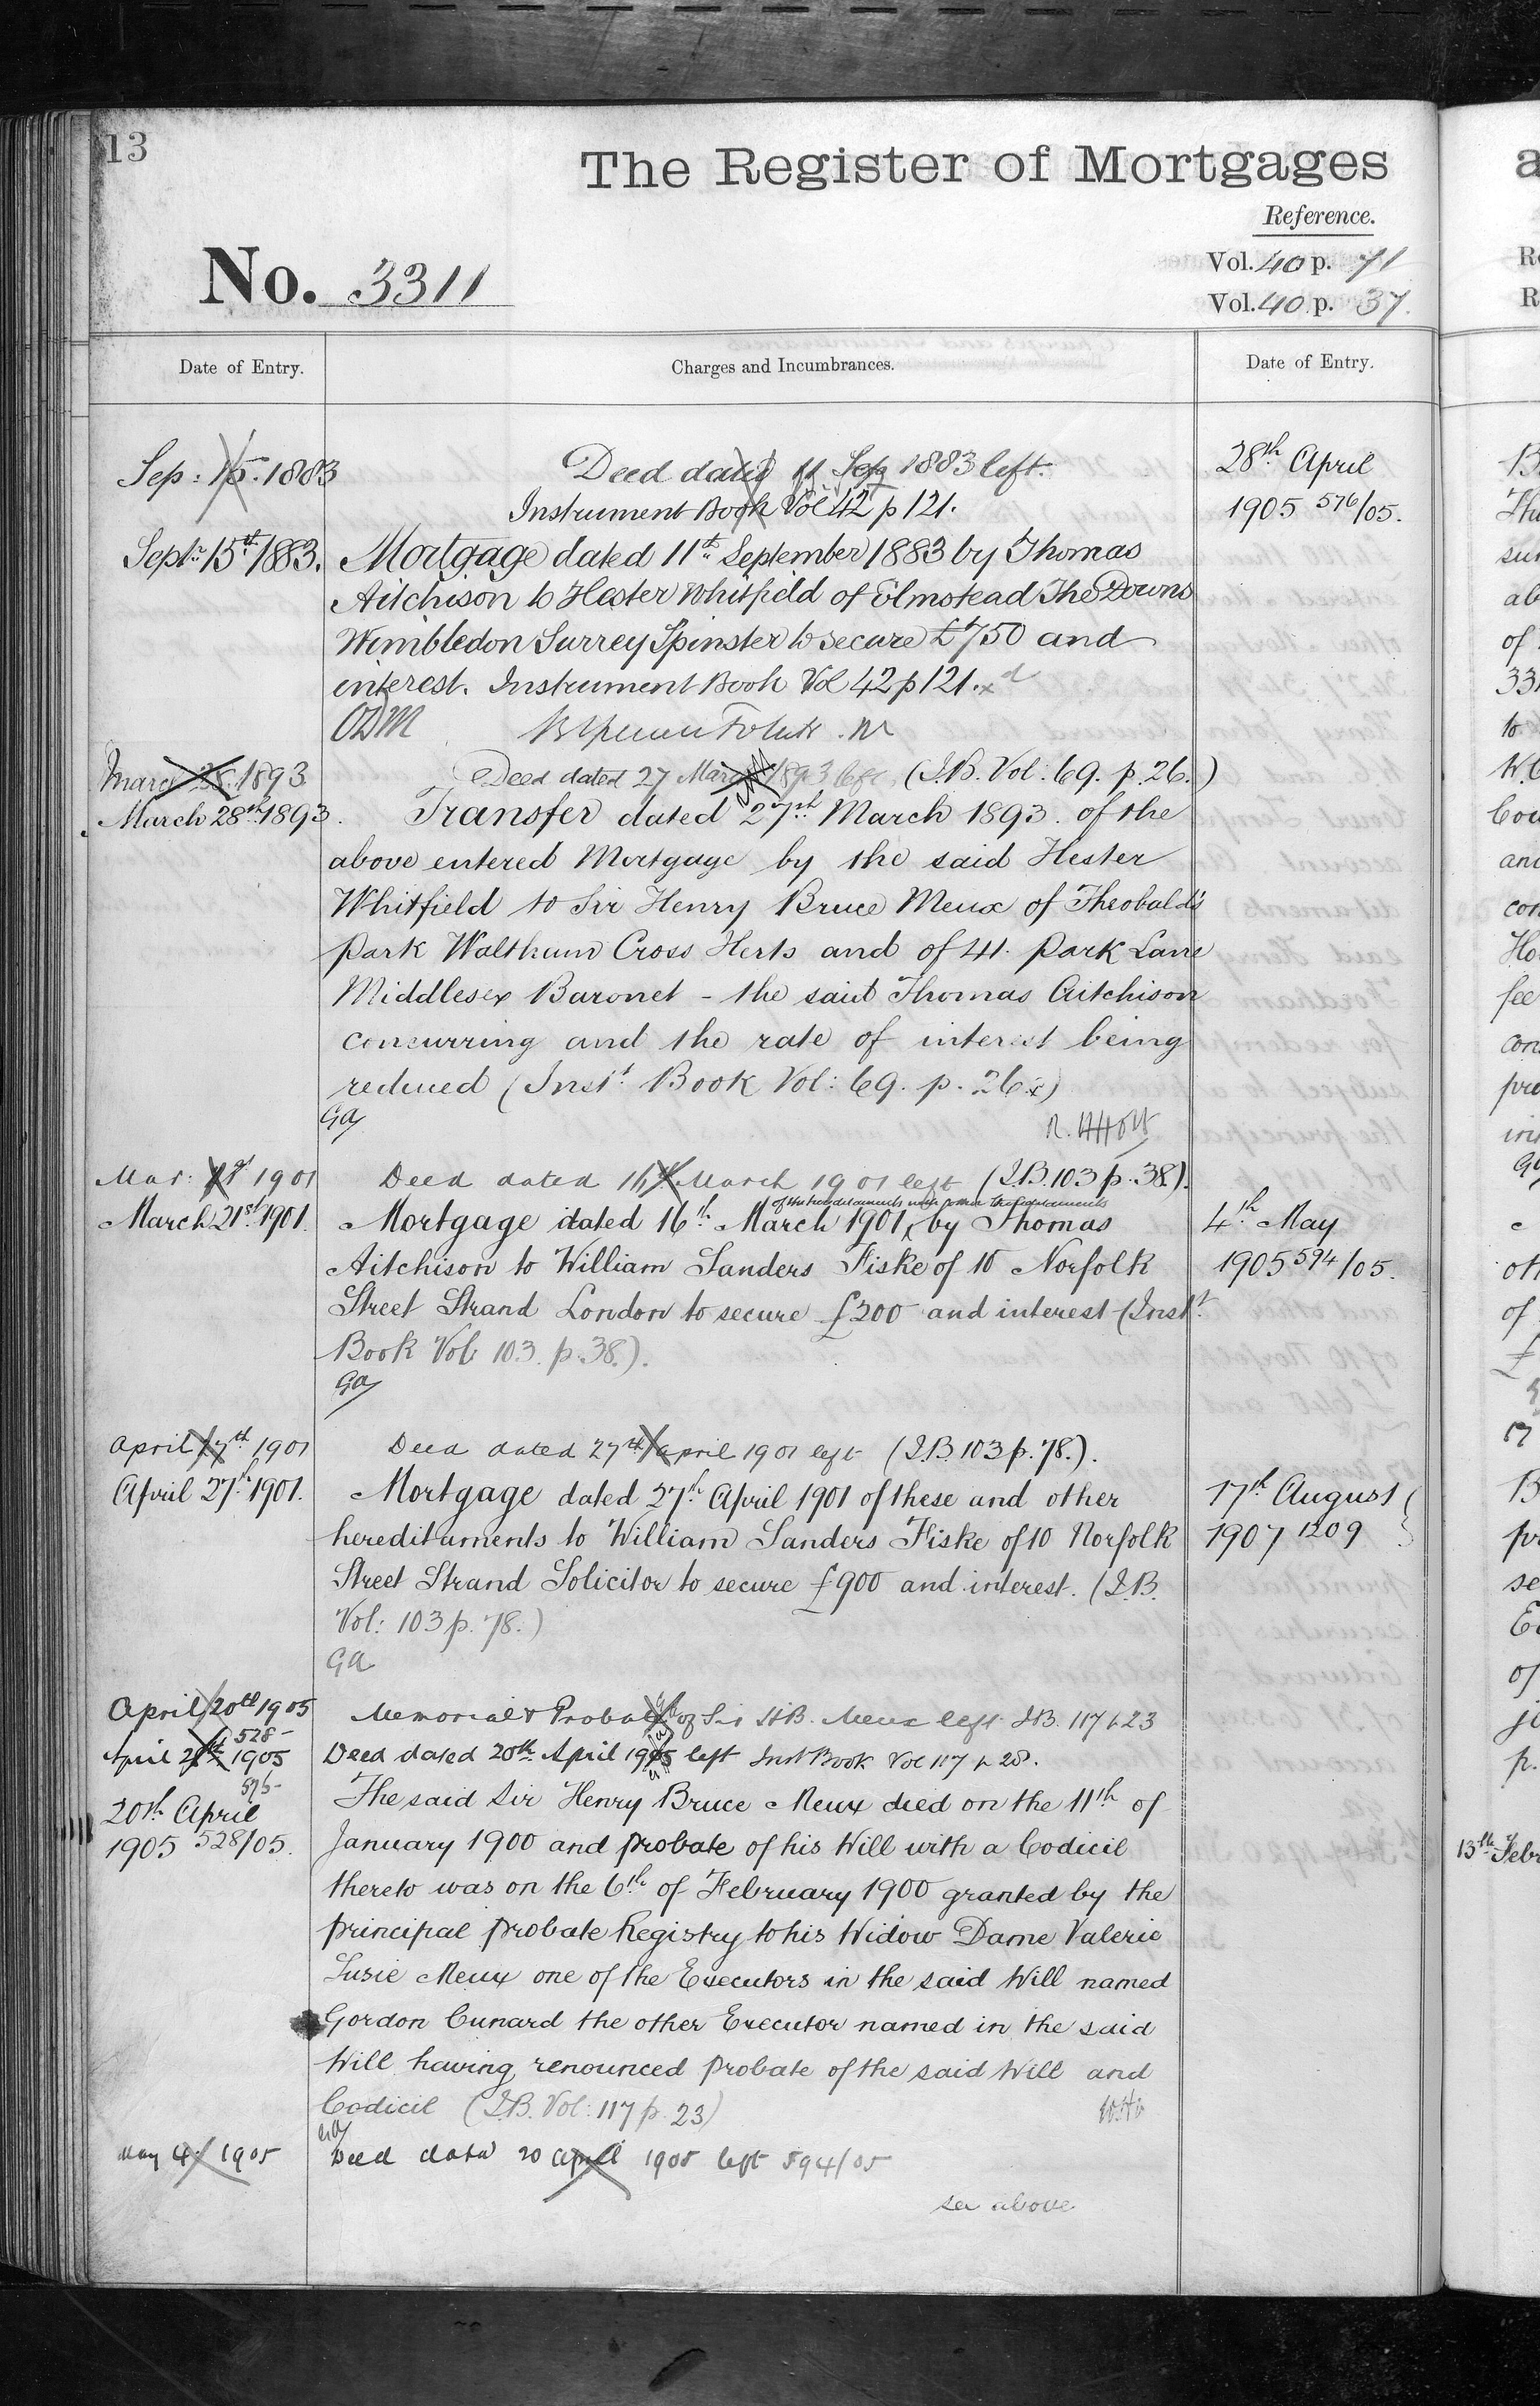 13
The Register of Mortgages
Reference.
No. 3311
Vol. 40 p. 71
Vol. 40 p. 37.
Date of Entry.
Charges and Incumbrances.
Date of Entry.
Sep: 15. 1883
Deed dated 11 Sep 1883 left.
Instrument Book Vol 42 p 121.
28th April
1905 576/05.
Sept: 15th 1883.
Mortgage dated 11th September 1883 by Thomas
Aitchison to Hester Whitfield of Elmstead The Downs
Wimbledon Surrey Spinster to secure £750 and
interest. Instrument Book Vol 42 p 121.
March 28. 1893
Deed dated 27 March 1893 left (I.B. Vol: 69. p. 26.)
March 28th 1893.
Transfer dated 27th March 1893. of the
above entered Mortgage by the said Hester
Whitfield to Sir Henry Bruce Meux of Theobald's
Park Waltham Cross Herts and of 41. Park Lane
Middlesex Baronet - the said Thomas Aitchison
concurring and the rate of interest being
reduced (Inst: Book Vol: 69. p. 26.)
GA
Mar: 1901
Deed dated 16 March 1901 left (I.B. 103 p. 38).
March 21st 1901.
Mortgage dated 16th March 1901, by Thomas
Aitchison to William Sanders Fiske of 10 Norfolk
Street Strand London to secure £200 and interest (Inst:
Book Vol: 103. p. 38.).
GA
4th May
1905 594/05.
April 27th 1901
Deed dated 27th April 1901 left (I.B. 103 p. 78.).
April 27th 1901.
Mortgage dated 27th April 1901 of these and other
hereditaments to William Sanders Fiske of 10 Norfolk
Street Strand Solicitor to secure £900 and interest. (I.B.
Vol: 103 p. 78.)
GA
17th August
1907 1209
April 20th 1905
528
Memorial & Probate of Sir H.B. Meux left I.B. 117 p 23
April 1905
576
Deed dated 20th April 1905 left Inst Book Vol 117 p 28.
20th April
1905 528/05.
The said Sir Henry Bruce Meux died on the 11th of
January 1900 and probate of his Will with a Codicil
thereto was on the 6th of February 1900 granted by the
principal probate Registry to his Widow Dame Valerie
Susie Meux one of the Executors in the said Will named
Gordon Cunard the other Executor named in the said
Will having renounced probate of the said Will and
Codicil (I.B. Vol: 117 p. 23)
GA
May 4 1905
Deed dated 20 April 1905 left 594/05
see above
13th Febr